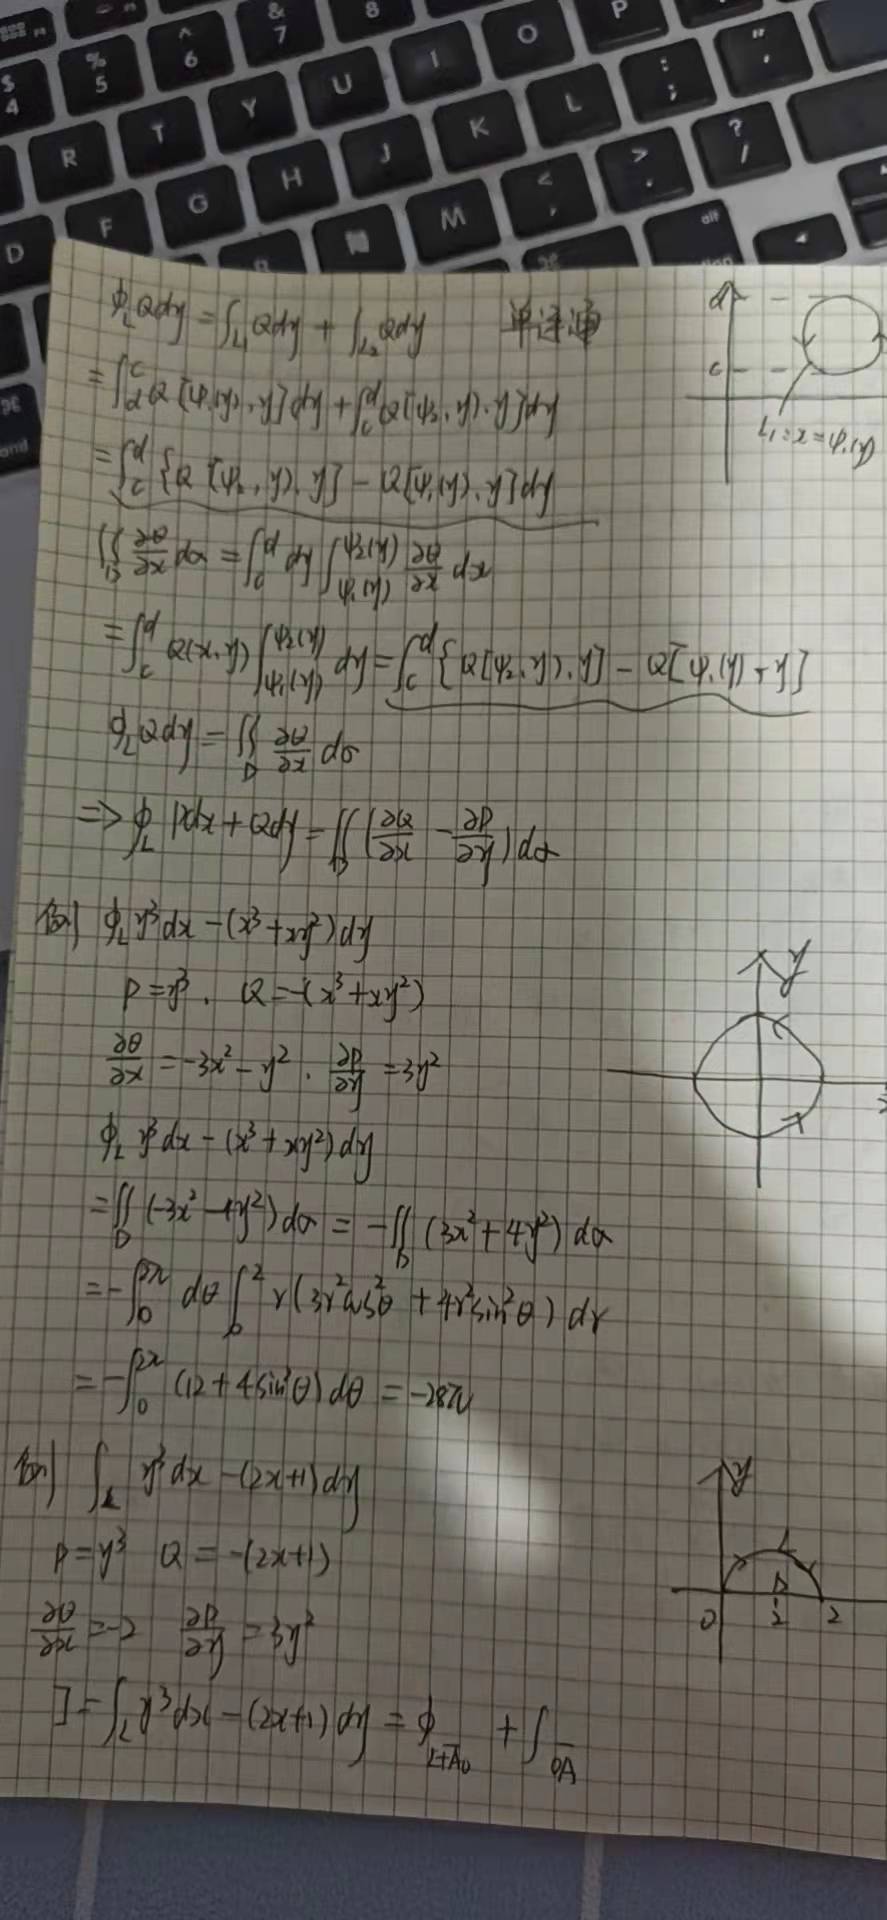 & 7
8
P
$ 4
% 5
^ 6
U
I
O
R
T
Y
K
L
: ;
" '
D
F
G
H
J
M
< ,
> .
? /
alt
∮_L Qdy = ∫_{L₁} Qdy + ∫_{L₂} Qdy 单连通
= ∫_d^c Q[ψ₁(y), y]dy + ∫_c^d Q[ψ₂(y), y]dy
= ∫_c^d {Q[ψ₂(y), y] - Q[ψ₁(y), y]}dy
d
c
L₁ = x = ψ₁(y)
∬_D ∂Q/∂x dσ = ∫_c^d dy ∫_{ψ₁(y)}^{ψ₂(y)} ∂Q/∂x dx
= ∫_c^d Q(x, y) |_{ψ₁(y)}^{ψ₂(y)} dy = ∫_c^d {Q[ψ₂(y), y] - Q[ψ₁(y), y]}
∮_L Qdy = ∬_D ∂Q/∂x dσ
=> ∮_L Pdx + Qdy = ∬_D (∂Q/∂x - ∂P/∂y) dσ
例 ∮_L y³dx - (x³ + xy²)dy
P = y³, Q = -(x³ + xy²)
∂Q/∂x = -3x² - y², ∂P/∂y = 3y²
y
∮_L y³dx - (x³ + xy²)dy
= ∬_D (-3x² - 4y²)dσ = -∬_D (3x² + 4y²)dσ
= -∫_0^{2π} dθ ∫_0^2 r(3r²cos²θ + 4r²sin²θ)dr
= -∫_0^{2π} (12 + 4sin²θ)dθ = -28π
例 ∫_L y³dx - (2x+1)dy
P = y³ Q = -(2x+1)
∂Q/∂x = -2 ∂P/∂y = 3y²
y
L
D
0
2
I = ∫_L y³dx - (2x+1)dy = ∮_{L+AO} + ∫_{OA}